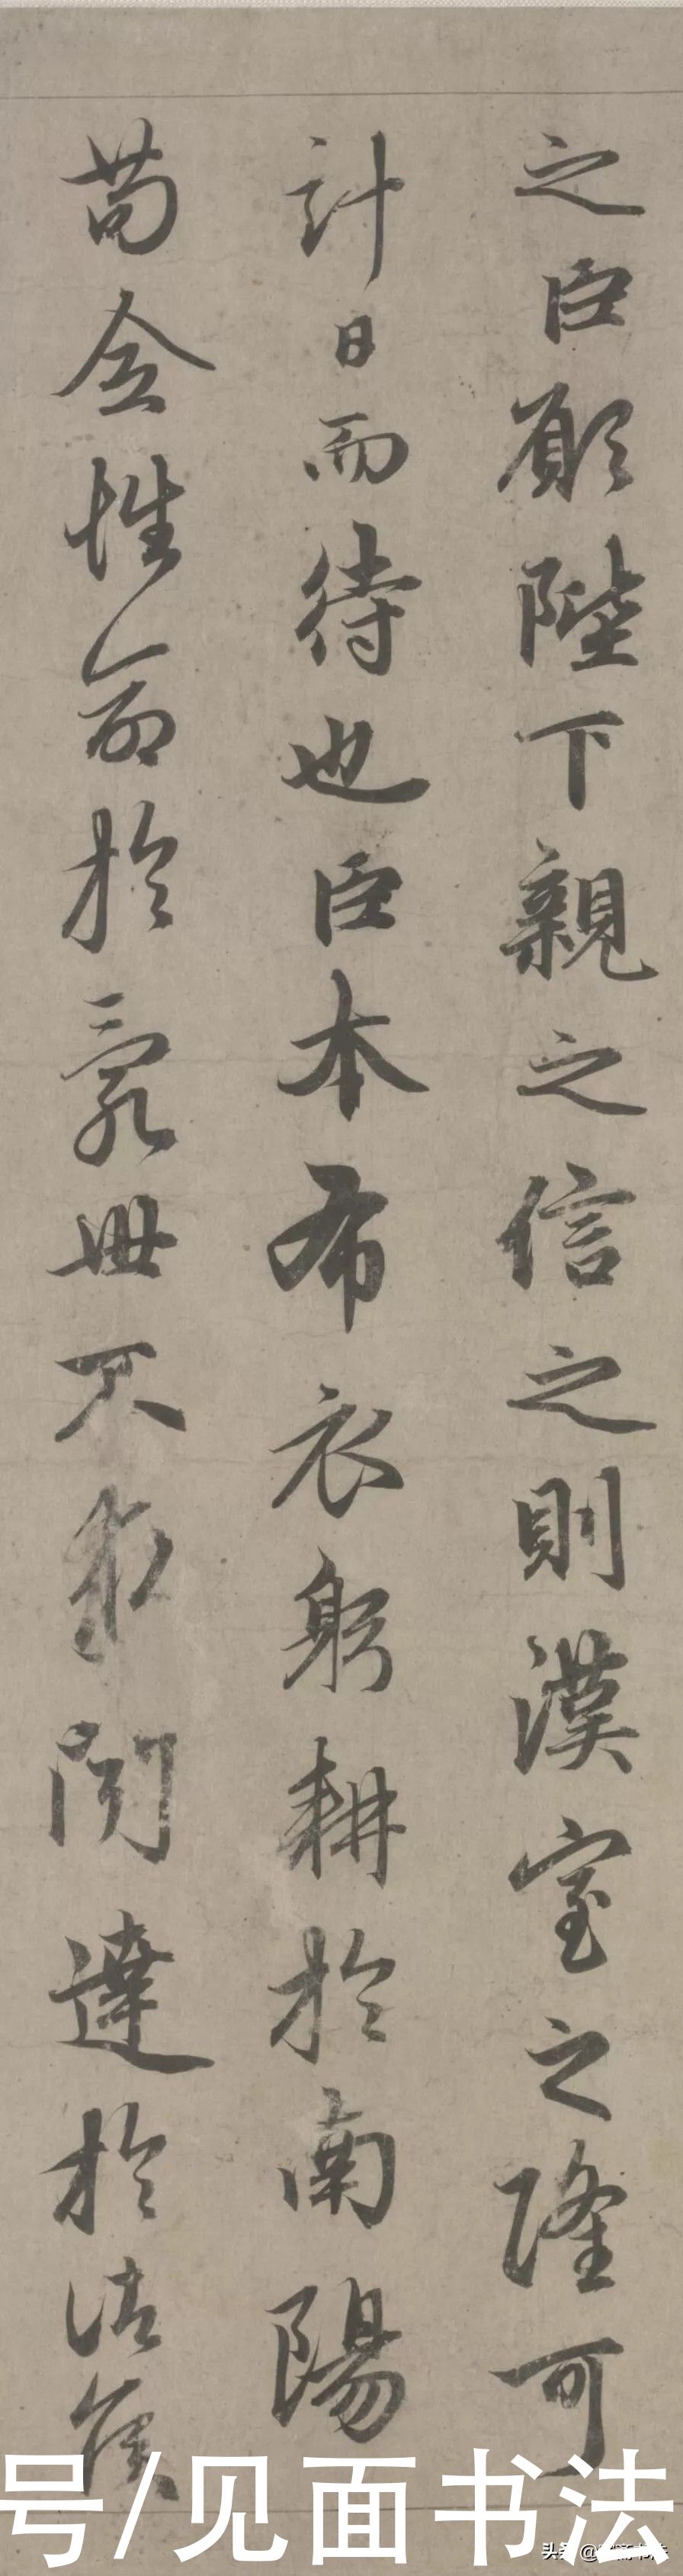 之臣願陛下親之信之則漢室之隆可
計日而待也臣本布衣躬耕於南陽
苟全性命於亂世不求聞達於諸侯
号/见面书法
头条@